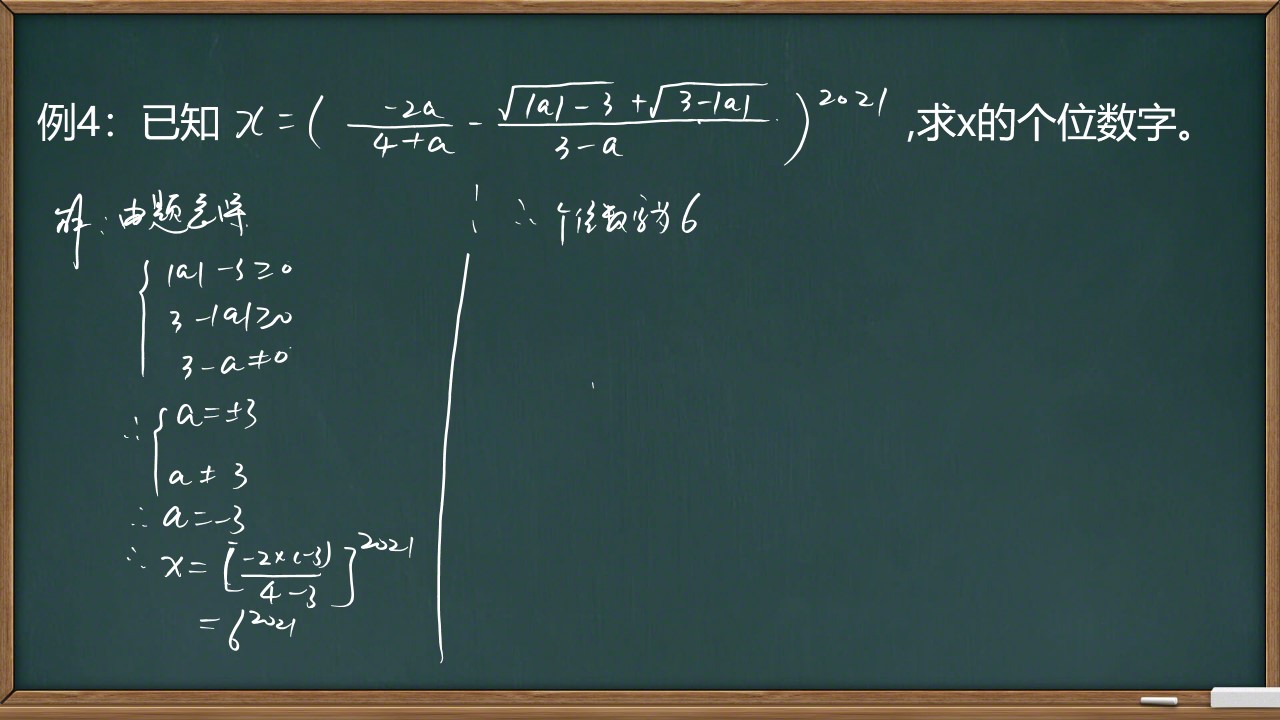 例4：已知 x=( -2a/(4+a) - (√(|a|-3)+√(3-|a|))/(3-a) )^2021 ,求x的个位数字。
解：由题意得
{ |a|-3≥0
3-|a|≥0
3-a≠0
∴ { a=±3
a≠3
∴ a=-3
∴ x=[ (-2×(-3))/(4-3) ]^2021
=6^2021
∴ 个位数字为6